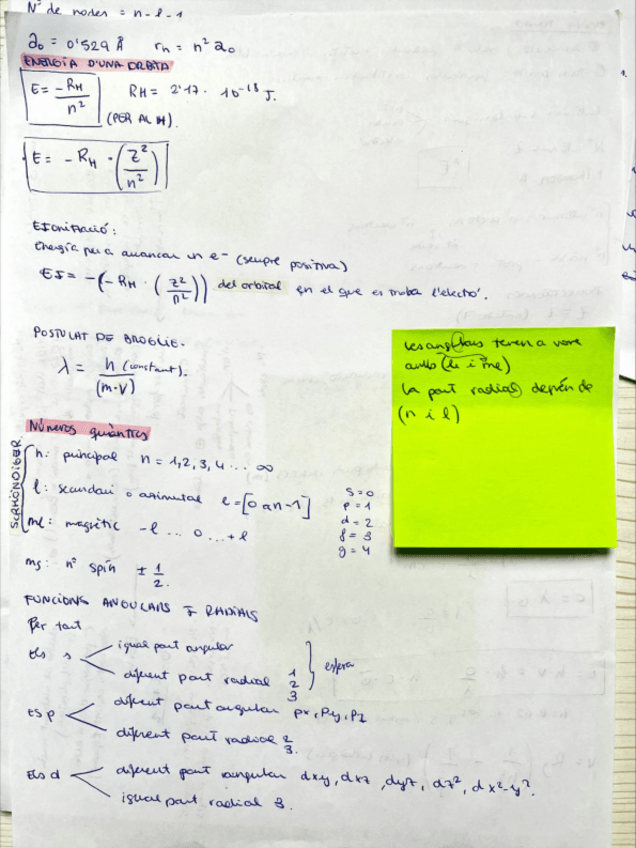 Nº de nodes = n-l-1
a₀ = 0'529 Å   rn = n² a₀
ENERGÍA D'UNA ORBITA
E = -RH / n²   RH = 2'17 · 10⁻¹⁸ J.
(PER AL H).
E = -RH · (Z² / n²)
Energía per a arrancar un e⁻ (sempre positiva)
EI = -(-RH · (Z² / n²)) del orbital en el que es truba l'electró.
POSTULAT DE BROGLIE.
λ = h (constant). / (m·v)
les angulars tenen a vore
amb (l i ml)
la part radial depén de
(n i l)
Números quàntics
SCRHÖNDIGER
n: principal n = 1, 2, 3, 4 ... ∞
l: secundari o azimutal l = [0 a n-1]
ml: magnètic -l ... 0 ... +l
s = 0
p = 1
d = 2
f = 3
g = 4
ms: nº spín ± 1/2.
FUNCIONS ANGULARS I RADIALS
Per tant
Els s
igual part angular
diferent part radial 1 2 3
esfera
Els p
diferent part angular px, Py, Pz
diferent part radial 2 3.
Els d
diferent part angular dxy, dxz, dyz, dz², dx²-y².
igual part radial 3.